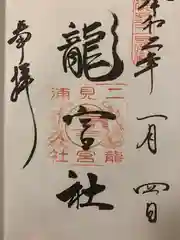 令和二年
一月四日
龍宮社
奉拝
二見浦
龍宮社